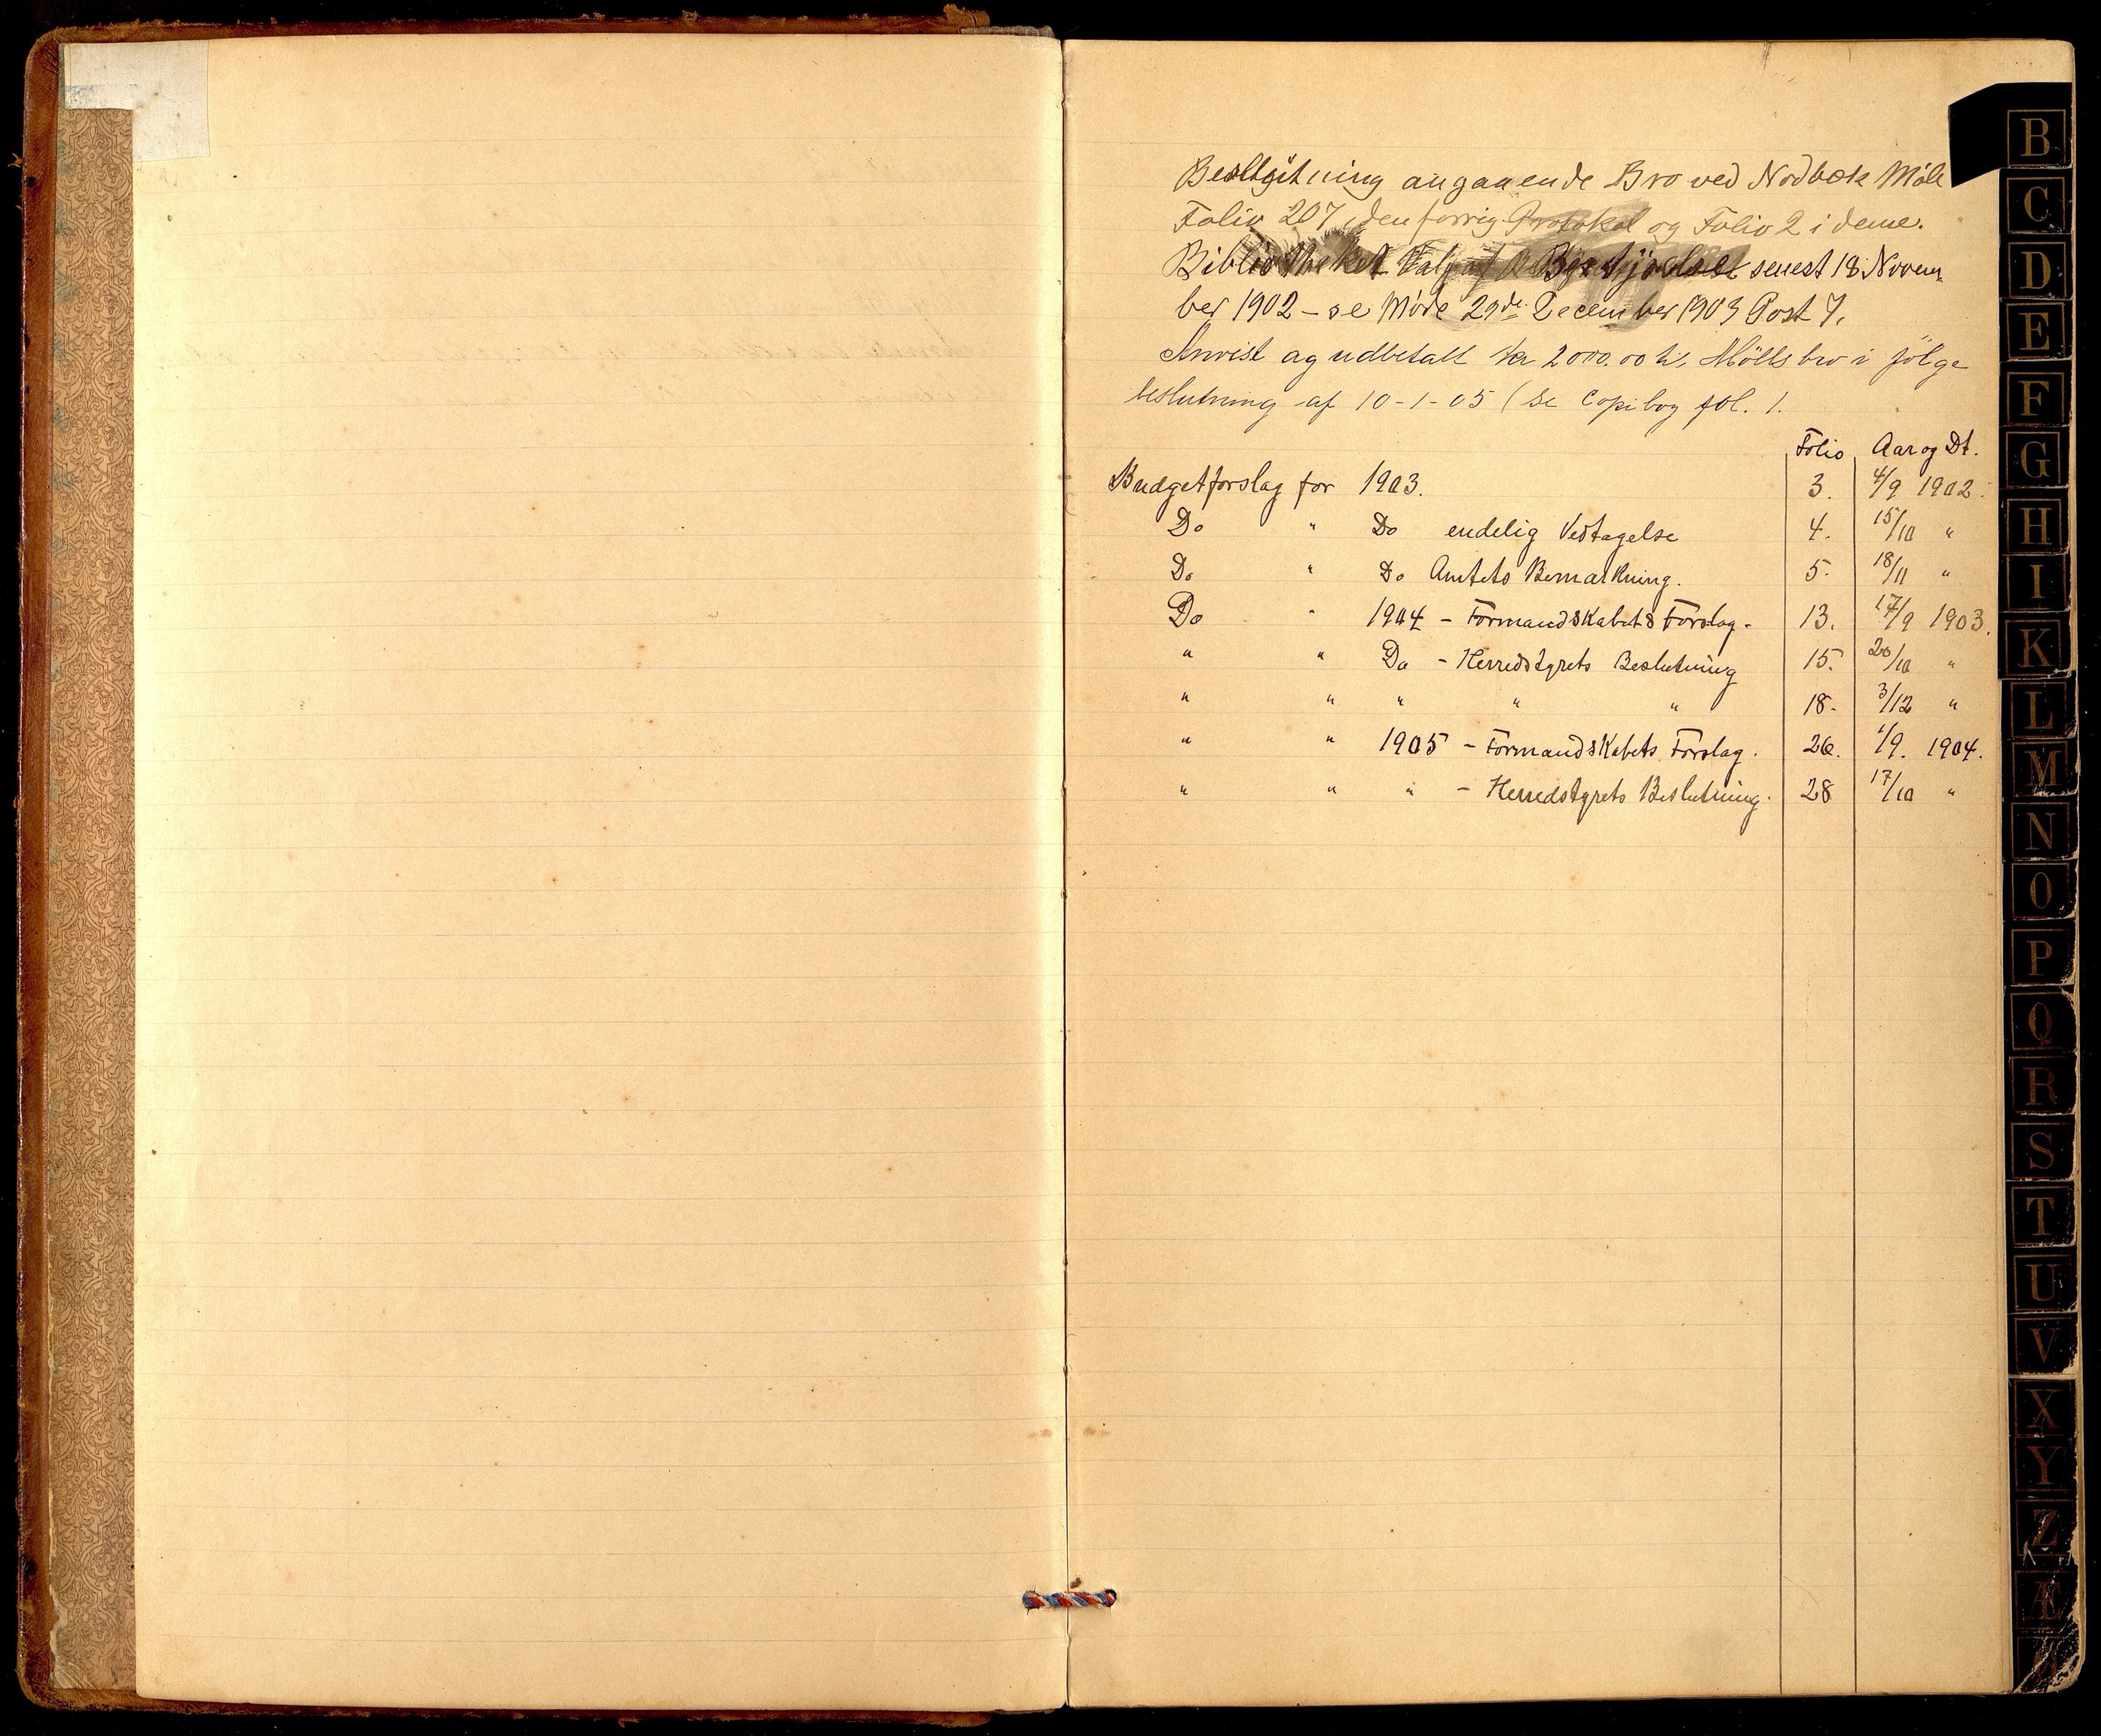 Besltgitning angaaende Bro ved Nodbæk Mølle
Folio 207 i den forrig Protokol og Folio 2 i denne.
Bibliotheket Valg af Bestyrelse senest 18 Novem
ber 1902 – se Møde 29de December 1903 Post 7.
Anvist og udbetalt kr 2000.00 til Mölls bro i følge
beslutning af 10-1-05 (se Copibog fol. 1.
Folio Aar og Dt.
Budgetforslag for 1903. 3. 4/9 1902.
Do " Do endelig Vedtagelse 4. 15/10 "
Do " Do Amtets Bemærkning. 5. 18/11 "
Do " 1904 – Formandskabets Forslag. 13. 17/9 1903.
" " Do – Herredstyrets Beslutning 15. 20/10 "
" " " " " 18. 3/12 "
" " 1905 – Formandskabets Forslag. 26. 1/9. 1904.
" " " – Herredstyrets Beslutning. 28 17/10 "
B
C
D
E
F
G
H
I
K
L
M
N
O
P
Q
R
S
T
U
V
X
Y
Z
Æ